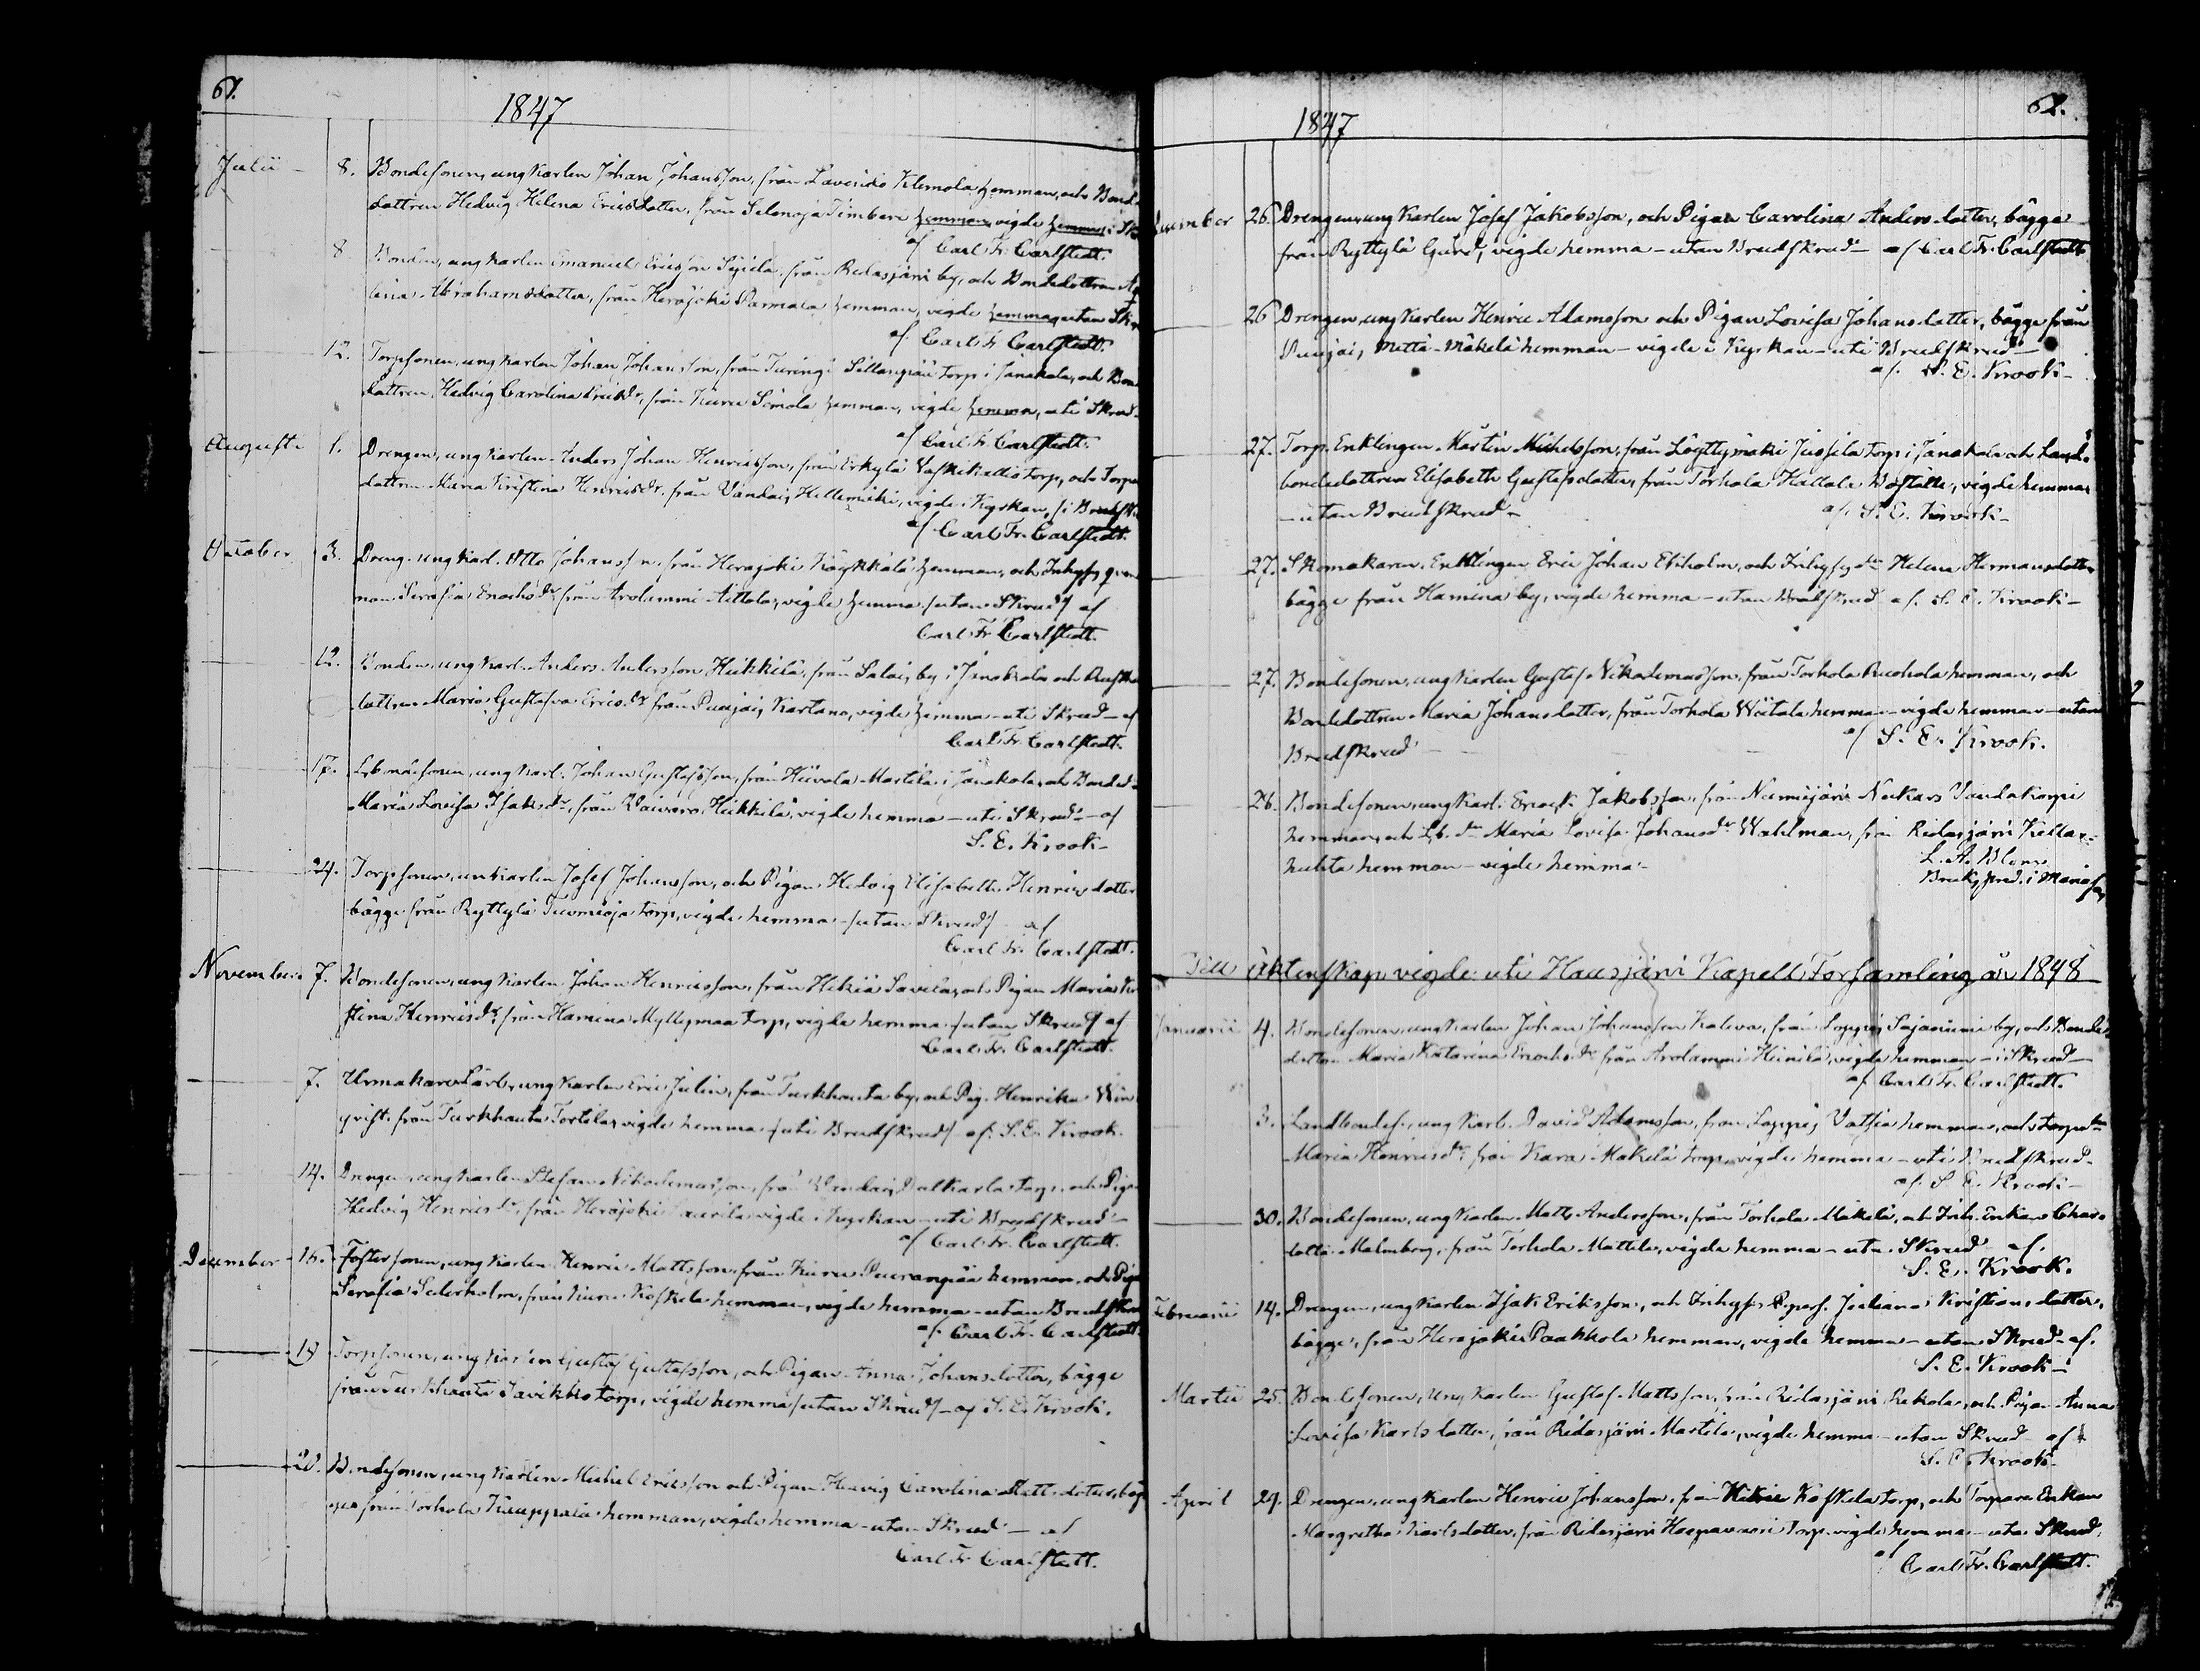 61.
1847
Julii 8. Bondesonen, ungkarlen Johan Johansson, från Lavesuo Klemola hemman, och Bonde
dottren Hedvig Helena Ericsdotter, från Selenoja Timberi hemman, vigde hemma i Sk
af Carl Fr. Carlstedt.
8 Bonden, ungkarlen Emanuel Ericsson Sipilä, från Ridasjärvi by, och Bondedottren
lina Abrahamsdotter, från Herajoki Parmala hemman, vigde hemma utan Skr
af Carl Fr. Carlstedt.
12. Torpsonen, ungkarlen Johan Johansson, från Turingi Sillanpää torp i Janakala, och Bon
dottren Hedvig Carolina Ericsdr, från Kuru Simola hemman, vigde hemma, uti Skrud
af Carl Fr. Carlstedt.
Augusti 1. Drengen, ungkarlen Anders Johan Henricsson, från Erkylä Vaskikallio torp, och Torpare
dottren Maria Kristina Henricsdr. från Vandais Hellemäki, vigde i Kyrkan, i Brudsk
af Carl Fr. Carlstedt.
October 3. Dreng. ungkarl. Otto Johansson, från Herajoki Käykkälä hemman, och Inhyses qvin
nan Serafia Enochsdr från Arolammi Aittola, vigde hemma utan Skrud af
Carl Fr. Carlstedt.
12. Bonden, ungkarl. Anders Andersson Heikkilä, från Salois by i Janakala och
dottren Maria Gustafva Ericsdr från Puujais Kartano, vigde hemma uti Skrud af
Carl Fr. Carlstedt.
17. Lb.ndesonen, ungkarl. Johan Gustafsson, från Hiivola Martila i Janakala, och Bonded.
Maria Lovisa Isaksdr, från Vaivaro Heikkilä, vigde hemma uti Skrud af
S. E. Krook
24. Torpsonen, unkarlen Josef Johansson, och Pigan Hedvig Elisabeth Henricsdotter
bägge från Ryttylä Tuomioja torp, vigde hemma utan Skrud af
Carl Fr. Carlstedt.
November 7. Bondesonen, ungkarlen Johan Henricsson, från Hikiä Savila, och Pigan Maria Kri
stina Henricsdr, från Kamina Myllymaa torp, vigde hemma utan Skrud af
Carl Fr. Carlstedt.
7. Urmakare Lärl. ungkarlen Eric Julin, från Turkhauta by, och Pig. Henrika Win
qvist. från Turkhauta Tortila, vigde hemma uti Brudskrud af S. E. Krook.
14. Drengen, ungkarlen Stefan Nikodemusson, från Vandais Dalkarla torp, och Pigan
Hedvig Henricsdr, från Herajoki Laurila, vigde i Kyrkan uti Brudskrud
af Carl Fr. Carlstedt.
December 16. Fostersonen, ungkarlen Henric Mattsson, från Kuru Puuranpää hemman, och Piga
Serafia Sederholm, från Kuru Koskela hemman, vigde hemma utan Brudskrud
af Carl Fr. Carlstedt.
19 Torpsonen, ungkarlen Gustaf Gustafsson, och Pigan Anna Johansdotter, bägge
från Turkhauta Savikko torp, vigde hemma utan Skrud af S. E. Krook.
20. Bondesonen, ungkarlen Michel Ericsson och Pigan Hedvig Carolina Mattsdotter, bäg
ge från Torhola Kauppala hemman, vigde hemma utan Skrud af
Carl Fr. Carlstedt.
62.
1847
December 26. Drengen, ungkarlen Josef Jakobsson, och Pigan Carolina Andersdotter, bägge
från Ryttylä Gård, vigde hemma utan Brudskrud af Carl Fr. Carlstedt
26 Drengen, ungkarlen Henric Adamsson och Pigan Lovisa Johansdotter, bägge från
Puujais, Mattä-Mäkelä hemman vigde i Kyrkan uti Brudskrud
af S. E. Krook
27. Torp. Enklingen Martin Michelsson, från Löyttymäki Jussila torp i Janakala och Land
bondedottren Elisabeth Gustafsdotter, från Torhola Kallala Boställe, vigde hemma
utan Brudskrud af S. E. Krook
27. Skomakaren, Enklingen Eric Johan Ekholm, och Inhysesdtr Helena Hermansdotter
bägge från Kamina by, vigde hemma utan Brudskrud af S. E. Krook
27. Bondesonen, ungkarlen Gustaf Nikodemusson, från Torhola Ruohola hemman, och
Bondedottren Maria Johansdotter, från Torhola Wiitala hemman vigde hemman utan
Brudskrud af S. E. Krook.
26. Bondesonen, ungkarl. Enock Jakobsson, från Nurmijärvi Nukars Vaudakorpi
hemman, och Lb. dr Maria Lovisa Johansdr Wahlman, från Ridasjärvi Kella
huhta hemman vigde hemma
L. A. Blom
Bruks pred. i Mariefors
Till äktenskap vigde uti Hausjärvi Kapell Församling år 1848
Januarii 4. Bondesonen, ungkarlen Johan Johansson Kaleva, från Loppis Sajaniemi by, och Bonde
dottren Maria Katarina Enochsdr från Arolammi Heinilä, vigde hemman i Skrud
af Carl Fr. Carlstedt.
3. Landbondes. ungkarl. David Adamsson, från Loppis Vatsia hemman, och torpdtr
Maria Henricsdr, från Kara Mäkelä torp, vigde hemma uti Brudskrud.
af S. E. Krook
30. Bondesonen, ungkarlen Matts Andersson, från Torhola Mäkelä, och Inh. Enkan Char
lotta Malmberg, från Torhola Mattila, vigde hemma utan Skrud af
S. E. Krook.
Februarii 14. Drengen, ungkarlen Isak Eriksson, och Inhyses Juliana Kristiansdotter,
bägge från Herajoki Paakkola hemman, vigde hemma utan Skrud af.
S. E. Krook
Martii 25. Bondesonen, Ungkarlen Gustaf Mattsson, från Ridasjärvi Rekola, och Pigan Anna
Lovisa Karlsdotter, från Ridasjärvi Martila, vigde hemma utan Skrud af
S. E. Krook
April 24. Drengen, ungkarlen Henric Johansson, från Hikiä Koskela torp, och Torpare Enkan
Margretha Karlsdotter, från Ridasjärvi Haapavuori torp. vigde hemma utan Skrud,
af Carl Fr. Carlstedt.